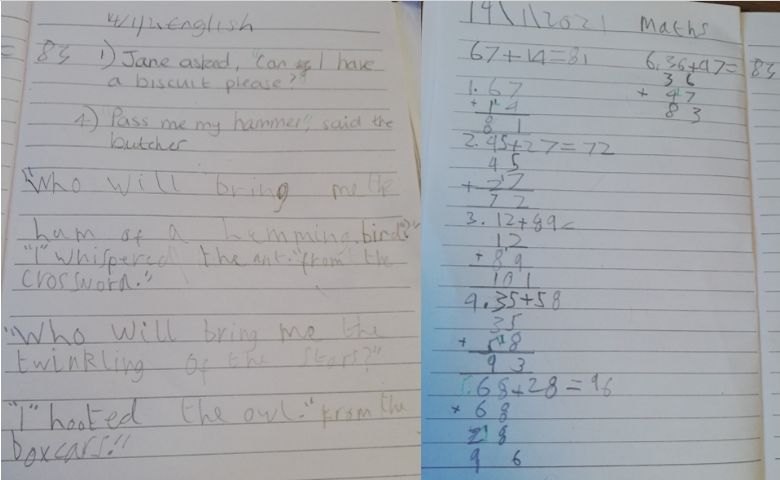 English
= 83 1) Jane asked, "Can I have
a biscuit please?"
Pass me my hammer", said the
butcher
"Who will bring me the
hum of a hemming.bird?"
"I" whispered the ant. "from the
crossword."
"Who will bring me the
twinkling of the stars?"
"I" hooted the owl." from the
boxcars!!
14\1\2021 Maths
67+14=81
1. 67
+ 14
81
2. 45+27=72
45
+ 27
72
3. 12+89=
12
+ 89
101
4. 35+58
35
+ 58
93
68+28=96
+ 68
28
96
6. 36+47=83
36
+ 47
83